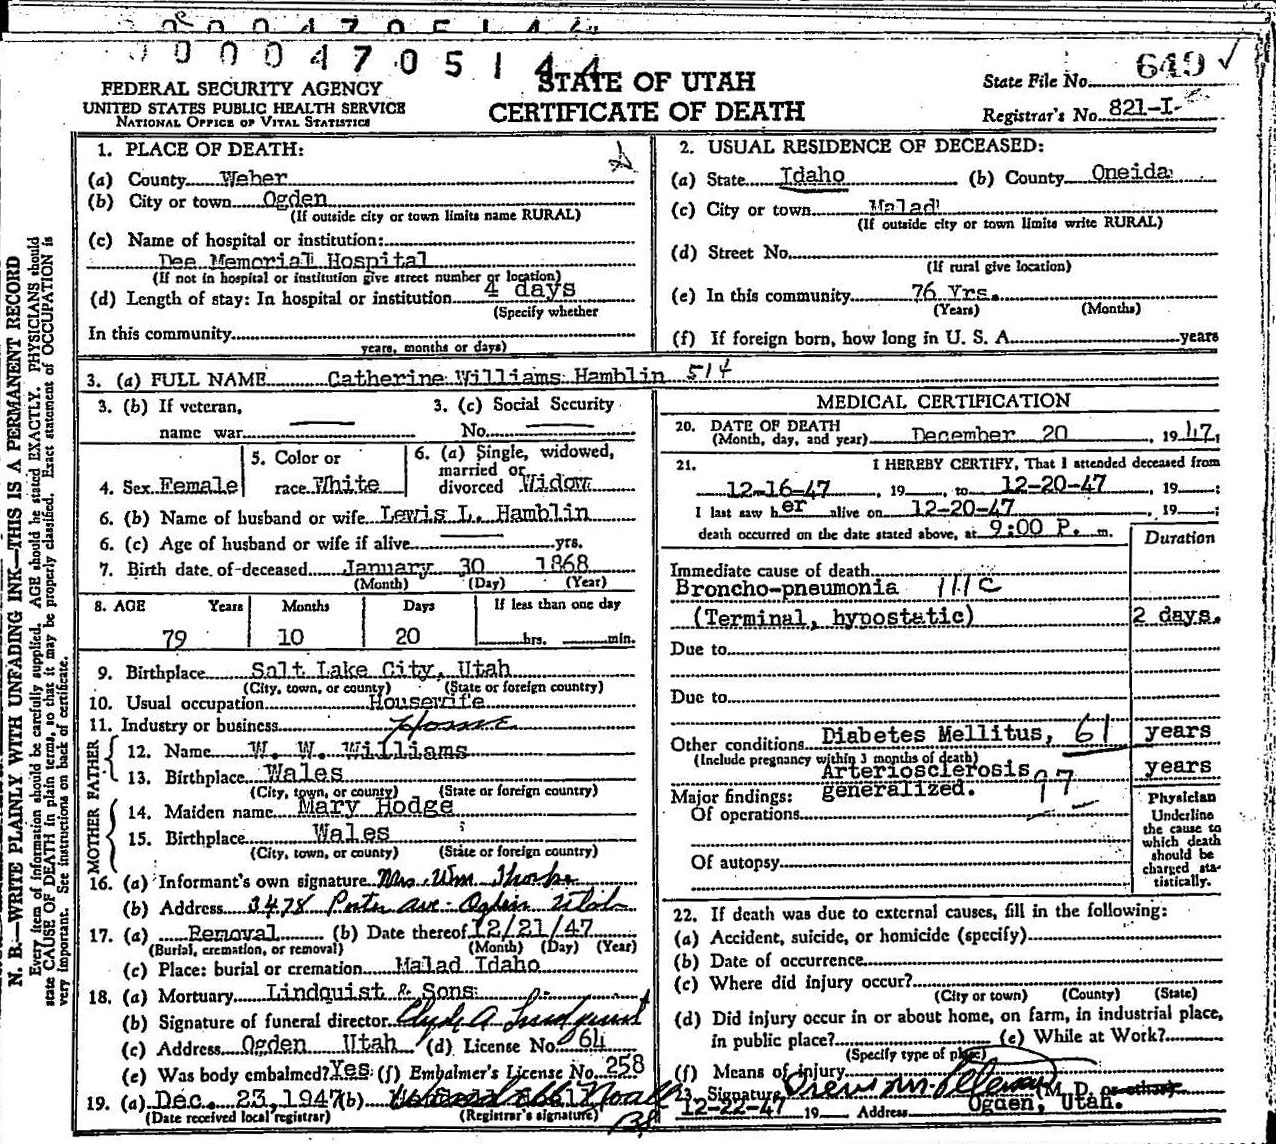 0 0 0 0 4 7 0 5 1 4 4
FEDERAL SECURITY AGENCY
UNITED STATES PUBLIC HEALTH SERVICE
NATIONAL OFFICE OF VITAL STATISTICS
STATE OF UTAH
CERTIFICATE OF DEATH
State File No. 649 ✓
Registrar's No. 821-I-
N. B.—WRITE PLAINLY WITH UNFADING INK—THIS IS A PERMANENT RECORD
Every item of information should be carefully supplied. AGE should be stated EXACTLY. PHYSICIANS should
state CAUSE OF DEATH in plain terms, so that it may be properly classified. Exact statement of OCCUPATION is
very important. See instructions on back of certificate.
1. PLACE OF DEATH:
(a) County Weber
(b) City or town Ogden
(If outside city or town limits name RURAL)
(c) Name of hospital or institution:
Dee Memorial Hospital
(If not in hospital or institution give street number or location)
(d) Length of stay: In hospital or institution 4 days
(Specify whether
In this community
years, months or days)
2. USUAL RESIDENCE OF DECEASED:
(a) State Idaho (b) County Oneida
(c) City or town Malad
(If outside city or town limits write RURAL)
(d) Street No.
(If rural give location)
(e) In this community 76 Yrs.
(Years) (Months)
(f) If foreign born, how long in U. S. A. years
3. (a) FULL NAME Catherine Williams Hamblin 514
3. (b) If veteran, 3. (c) Social Security
name war No.
4. Sex Female
5. Color or
race White
6. (a) Single, widowed,
married or
divorced Widow
6. (b) Name of husband or wife Lewis L. Hamblin
6. (c) Age of husband or wife if alive yrs.
7. Birth date of deceased January 30 1868
(Month) (Day) (Year)
8. AGE Years Months Days If less than one day
79 10 20 hrs. min.
9. Birthplace Salt Lake City, Utah
(City, town, or county) (State or foreign country)
10. Usual occupation Housewife
11. Industry or business Home
FATHER
12. Name W. W. Williams
13. Birthplace Wales
(City, town, or county) (State or foreign country)
MOTHER
14. Maiden name Mary Hodge
15. Birthplace Wales
(City, town, or county) (State or foreign country)
16. (a) Informant's own signature Mrs. Wm Thorpe
(b) Address 3478 Porter Ave - Ogden Utah
17. (a) Removal (b) Date thereof 12/21/47
(Burial, cremation, or removal) (Month) (Day) (Year)
(c) Place: burial or cremation Malad Idaho
18. (a) Mortuary Lindquist & Sons
(b) Signature of funeral director Clyde A Lindquist
(c) Address Ogden Utah (d) License No. 64
(e) Was body embalmed? Yes (f) Embalmer's License No. 258
19. (a) Dec. 23, 1947 (b)
(Date received local registrar) (Registrar's signature)
MEDICAL CERTIFICATION
20. DATE OF DEATH
(Month, day, and year) December 20 , 19 47,
21. I HEREBY CERTIFY, That I attended deceased from
12-16-47 , 19 , to 12-20-47 , 19 ;
I last saw her alive on 12-20-47 , 19 ;
death occurred on the date stated above, at 9:00 P. m.
Duration
Immediate cause of death
Broncho-pneumonia 111c
(Terminal, hypostatic) 2 days.
Due to
Due to
Other conditions Diabetes Mellitus, 61 years
(Include pregnancy within 3 months of death)
Arteriosclerosis 97 years
generalized.
Major findings:
Of operations
Of autopsy
Physician
Underline
the cause to
which death
should be
charged sta-
tistically.
22. If death was due to external causes, fill in the following:
(a) Accident, suicide, or homicide (specify)
(b) Date of occurrence
(c) Where did injury occur?
(City or town) (County) (State)
(d) Did injury occur in or about home, on farm, in industrial place,
in public place? (e) While at Work?
(Specify type of place)
(f) Means of injury
23. Signature (M. D. or other)
12-22-47 19 Address Ogden, Utah.